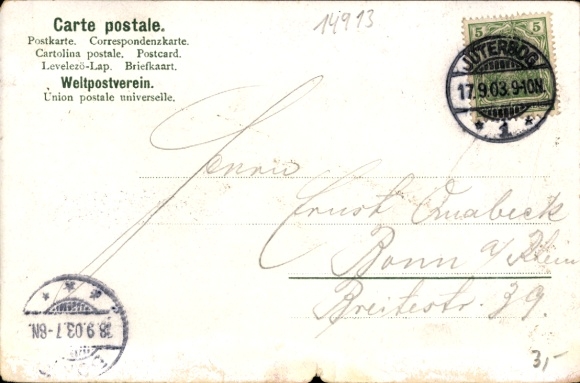 14913
Carte postale.
Postkarte. Correspondenzkarte.
Cartolina postale. Postcard.
Levelező-Lap. Briefkaart.
Weltpostverein.
Union postale universelle.
5 5
JÜTERBOG
17.9.03.9-10N.
* 1 *
Herrn
Ernst Quabeck
Bonn a/Rhein
Breitestr. 39.
18.9.03.7-8N.
3,-